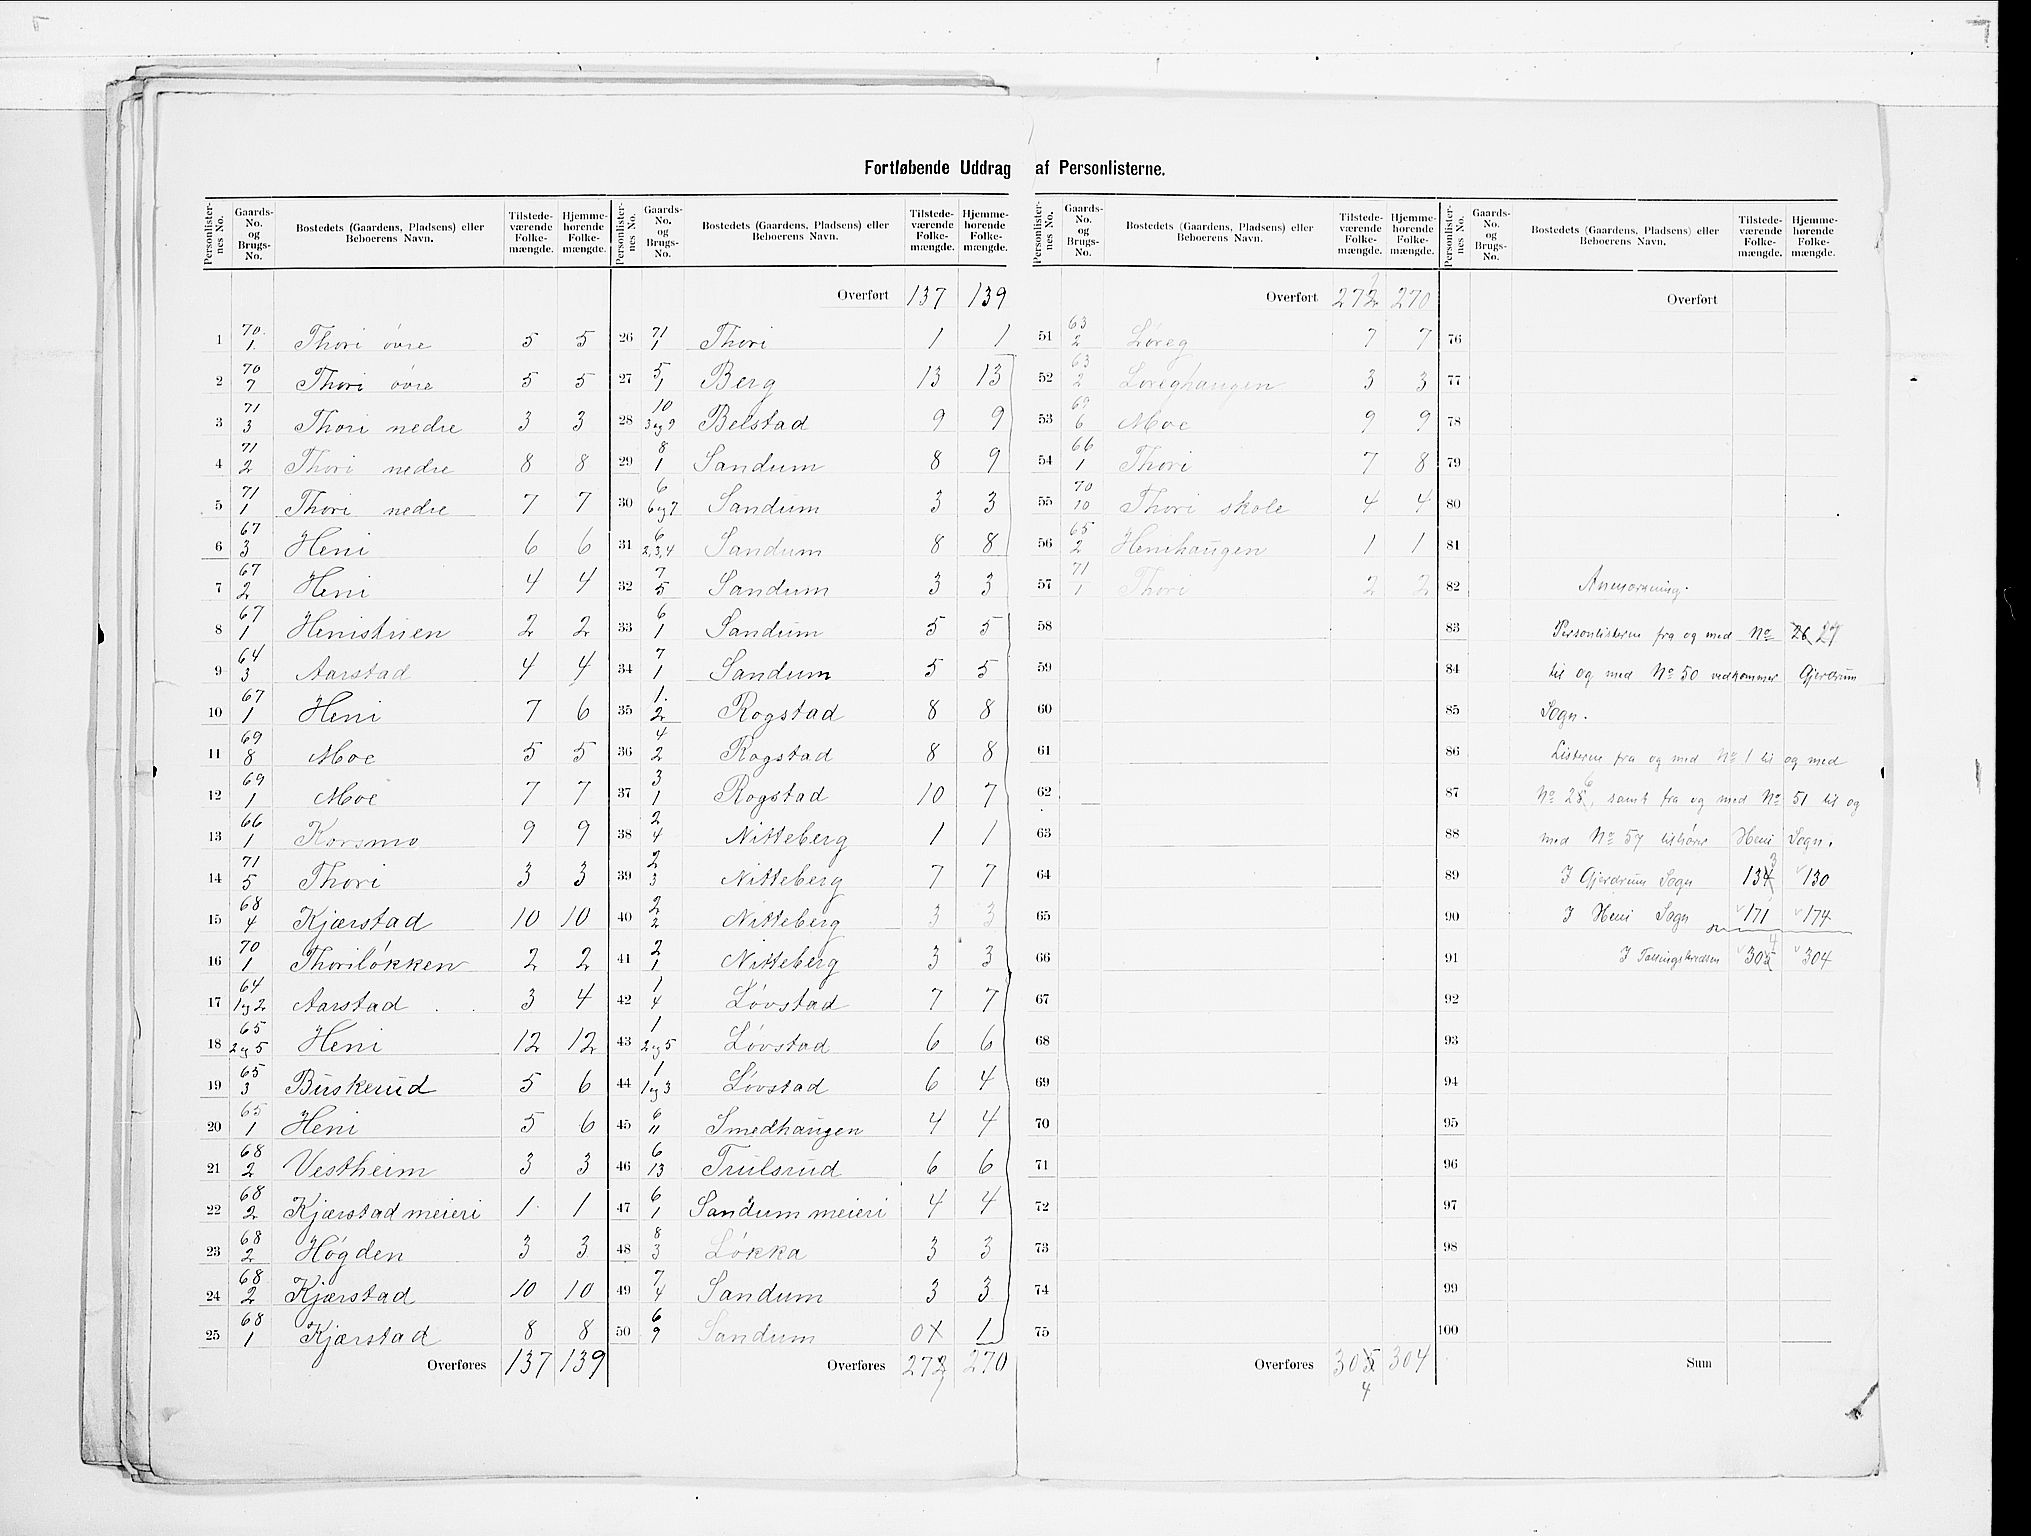 Fortløbende Uddrag af Personlisterne.
Personlister-nes No. Gaards-No. og Brugs-No. Bostedets (Gaardens, Pladsens) eller Beboerens Navn. Tilstede-værende Folke-mængde. Hjemme-hørende Folke-mængde.
1 70/1 Thori övre 5 5
2 70/7 Thori övre 5 5
3 71/3 Thori nedre 3 3
4 71/2 Thori nedre 8 8
5 71/1 Thori nedre 7 7
6 67/3 Heni 6 6
7 67/2 Heni 4 4
8 67/1 Henistuen 2 2
9 64/3 Aarstad 4 4
10 67/1 Heni 7 6
11 69/8 Moe 5 5
12 69/1 Moe 7 7
13 66/1 Korsmo 9 9
14 71/5 Thori 3 3
15 68/4 Kjærstad 10 10
16 70/1 Thoriløkken 2 2
17 64/1 og 2 Aarstad 3 4
18 65/2 og 5 Heni 12 12
19 65/3 Buskerud 5 6
20 65/1 Heni 5 6
21 68/2 Vestheim 3 3
22 68/2 Kjærstad meieri 1 1
23 68/2 Høgden 3 3
24 68/2 Kjærstad 10 10
25 68/1 Kjærstad 8 8
Overføres 137 139
Personlister-nes No. Gaards-No. og Brugs-No. Bostedets (Gaardens, Pladsens) eller Beboerens Navn. Tilstede-værende Folke-mængde. Hjemme-hørende Folke-mængde.
Overført 137 139
26 71/1 Thori 1 1
27 5/1 Berg 13 13
28 10/3 og 9 Belstad 9 9
29 8/1 Sandum 8 9
30 6/6 og 7 Sandum 3 3
31 6/2,3,4 Sandum 8 8
32 7/5 Sandum 3 3
33 6/1 Sandum 5 5
34 7/1 Sandum 5 5
35 1/2 Rogstad 8 8
36 4/2 Rogstad 8 8
37 3/1 Rogstad 10 7
38 2/4 Nitteberg 1 1
39 2/3 Nitteberg 7 7
40 2/2 Nitteberg 3 3
41 2/1 Nitteberg 3 3
42 1/4 Løvstad 7 7
43 1/2 og 5 Løvstad 6 6
44 1/1 og 3 Løvstad 6 4
45 6/11 Smedhaugen 4 4
46 6/13 Trulsrud 6 6
47 6/1 Sandum meieri 4 4
48 8/3 Løkka 3 3
49 7/4 Sandum 3 3
50 6/9 Sandum 0 1
Overføres 272 1 270
Personlister-nes No. Gaards-No. og Brugs-No. Bostedets (Gaardens, Pladsens) eller Beboerens Navn. Tilstede-værende Folke-mængde. Hjemme-hørende Folke-mængde.
Overført 272 270
51 63/2 Løreg 7 7
52 63/2 Løreghaugen 3 3
53 69/6 Moe 9 9
54 66/1 Thori 7 8
55 70/10 Thori skole 4 4
56 65/2 Henihaugen 1 1
57 71/1 Thori 2 2
58
59
60
61
62
63
64
65
66
67
68
69
70
71
72
73
74
75
Overføres 305 4 304
Personlister-nes No. Gaards-No. og Brugs-No. Bostedets (Gaardens, Pladsens) eller Beboerens Navn. Tilstede-værende Folke-mængde. Hjemme-hørende Folke-mængde.
Overført
76
77
78
79
80
81
82 Anmerkning.
83 Personlisterne fra og med No 26 27
84 til og med No 50 vedkommer Gjerdrum
85 Sogn.
86 Listerne fra og med No 1 til og med
87 No 25 6, samt fra og med No 51 til og
88 med No 57 tilhører Heni Sogn.
89 I Gjerdrum Sogn 134 3 130
90 I Heni Sogn 171 174
91 I Tællingskredsen 305 4 304
92
93
94
95
96
97
98
99
100
Sum